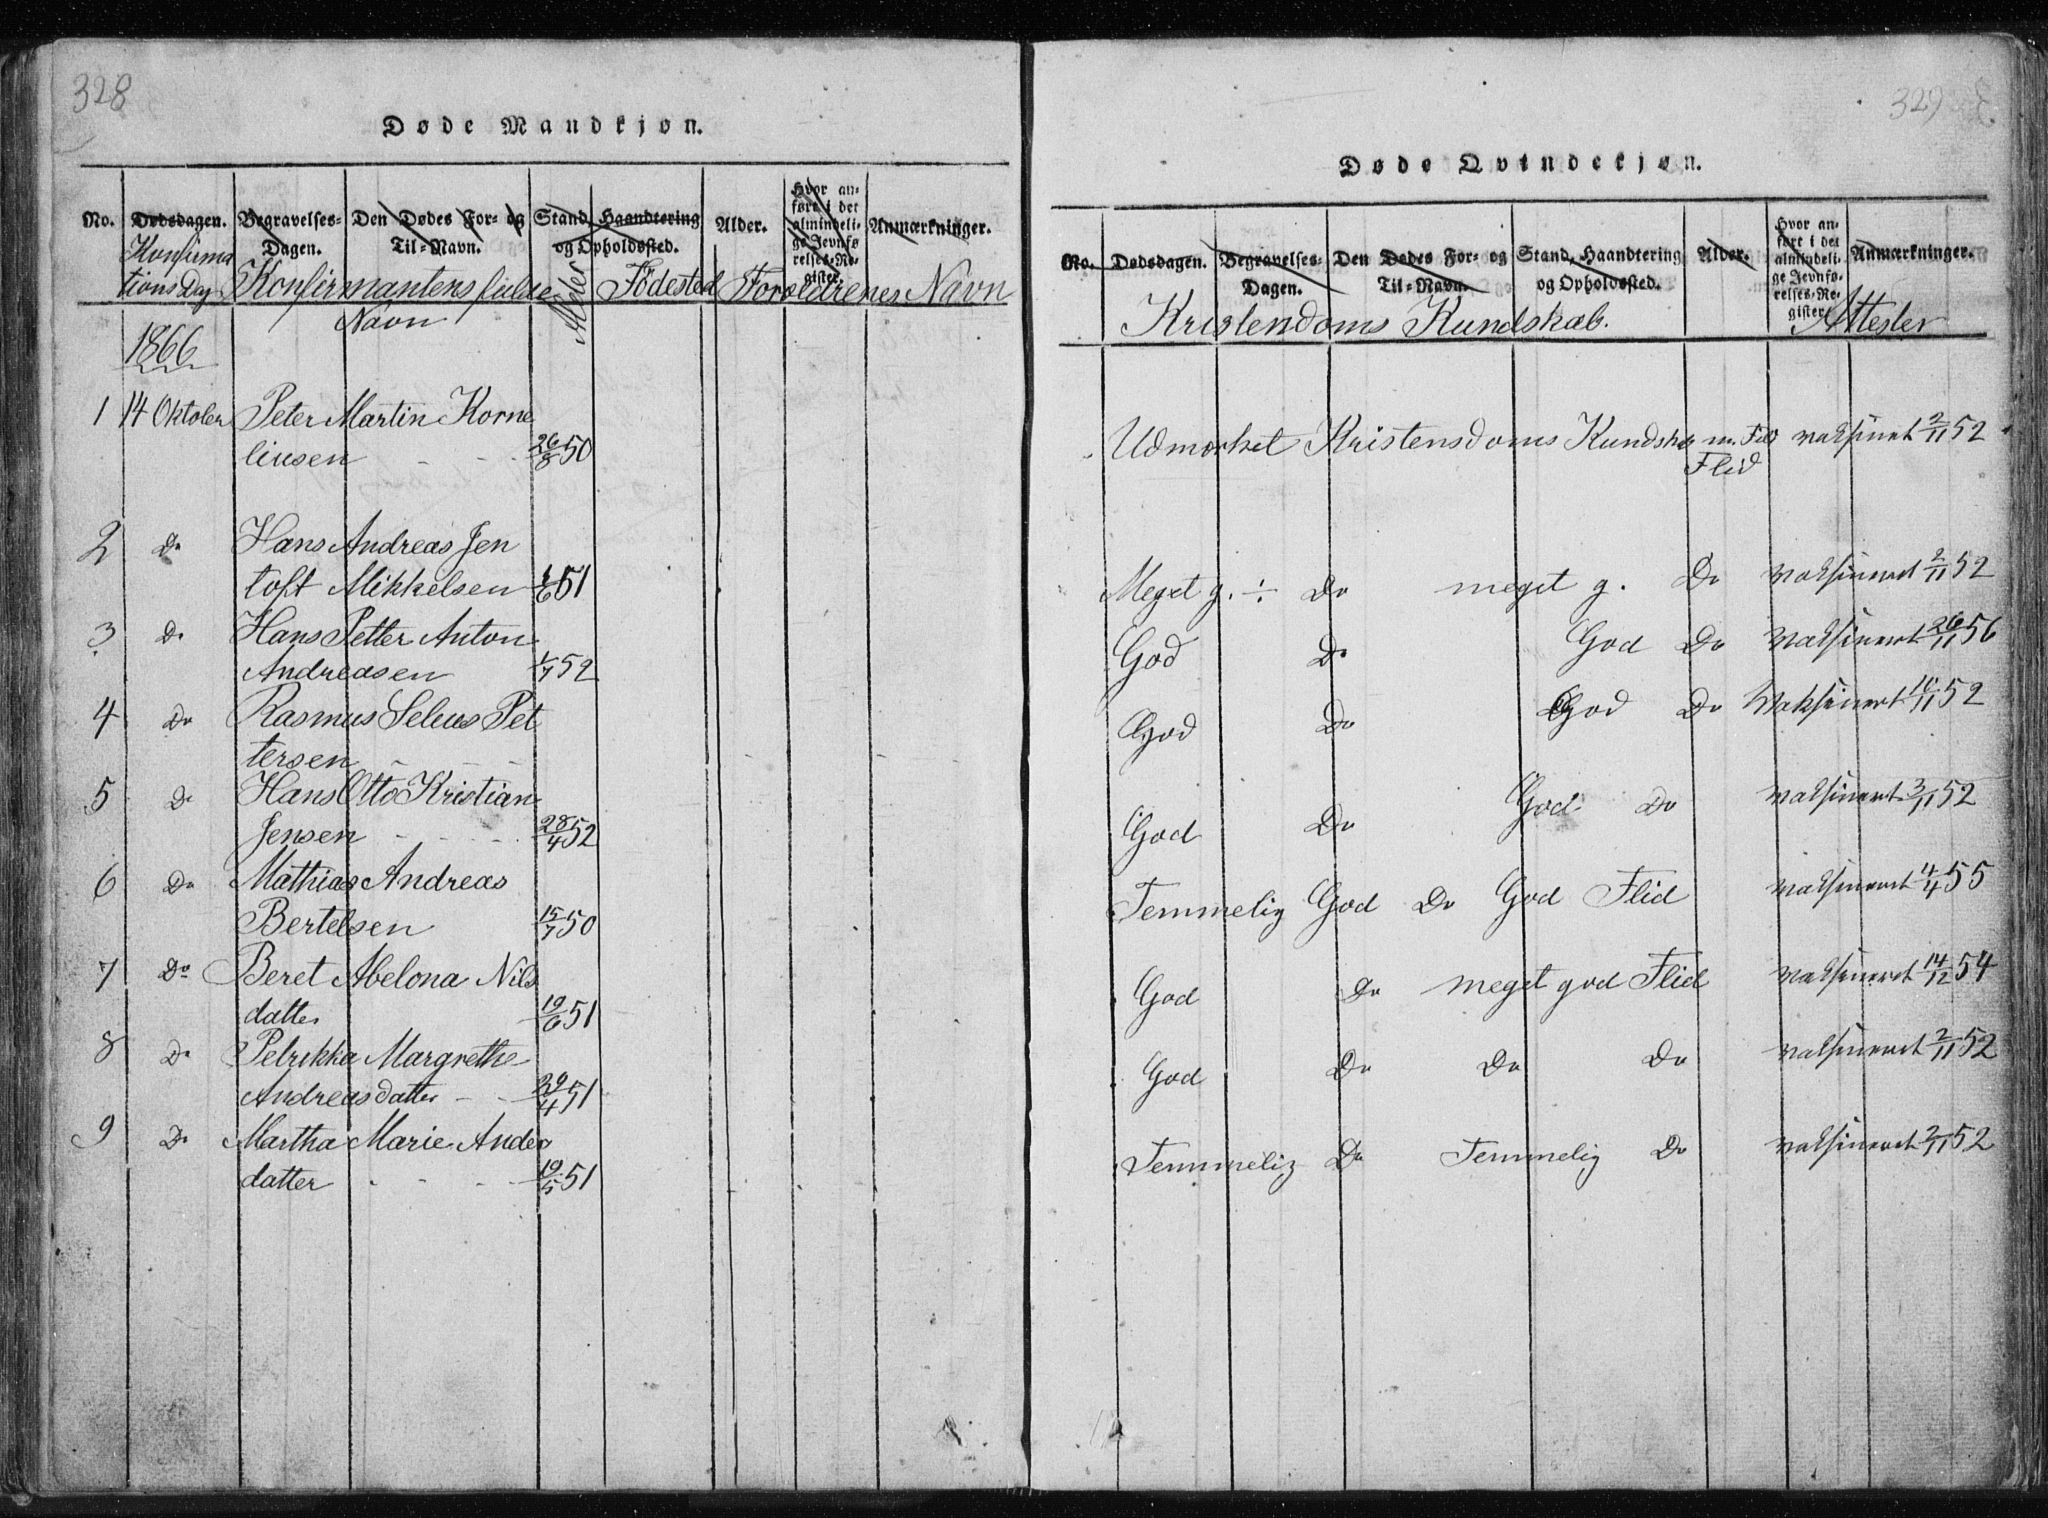 328
Døde Mandkjøn.
No. Dødsdagen. Begravelses-Dagen. Den Dødes For- og Til-Navn. Stand, Haandtering og Opholdssted. Alder. Hvor anført i det almindelige Jevnførelses-Register. Anmærkninger.
Konfirma
tions Dag Konfirmantens fulde Navn Alder Födested Foreldrenes Navn
1866
1 14 Oktober Peter Martin Korne
liusen - - - 26/8 50
2 Do Hans Andreas Jen
toft Mikkelsen 1/6 51
3 Do Hans Petter Anton
Andreasen 1/7 52
4 Do Rasmus Seleus Pet
tersen - - -
5 Do Hans Otto Kristian
Jensen - - - - 28/4 52
6 Do Mathias Andreas
Bertelsen 15/7 50
7 Do Beret Abelona Nils
datter 19/6 51
8 Do Petrikka Margrethe
Andreasdatter - - 29/4 51
9 Do Martha Marie Anders
datter - - - - 19/5 51
329
Døde Qvindekjøn.
No. Dødsdagen. Begravelses-Dagen. Den Dødes For- og Til-Navn. Stand, Haandtering og Opholdssted. Alder. Hvor anført i det almindelige Jevnførelses-Register. Anmærkninger.
Kristendoms Kundskab. Attester
Udmærket Kristensdoms Kundskab m. Flid vaksinert 2/11 52
Flid
Meget g. ÷ Do meget g. Do vaksineret 2/11 52
God Do God Do Vaksinert 26/11 56
God Do God Do Vaksinert 10/11 52
God Do God Do vaksinert 3/11 52
Temmelig God Do God Flid vaksineret 4/4 55
God Do meget god Flid vaksineret 14/12 54
God Do Do Do vaksineret 2/11 52
Temmelig Do Temmelig Do vaksineret 2/11 52